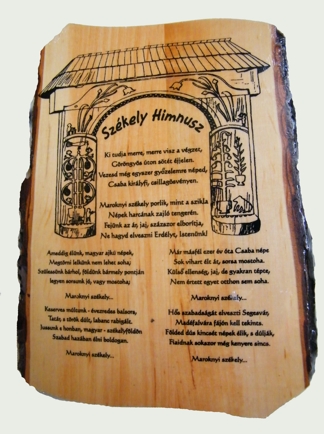 Székely Himnusz
Ki tudja merre, merre visz a végzet,
Göröngyös úton sötét éjjelen.
Vezesd még egyszer győzelemre néped,
Csaba királyfi, csillagösvényen.
Maroknyi székely porlik, mint a szikla
Népek harcának zajló tengerén.
Fejünk az ár jaj, százszor elborítja,
Ne hagyd elveszni Erdélyt, Istenünk!
Ameddig élünk, magyar ajkú népek,
Megtörni lelkünk nem lehet soha;
Szülessünk bárhol, földünk bármely pontján
legyen sorsunk jó, vagy mostoha;
Maroknyi székely...
Keserves múltunk - évezredes balsors,
Tatár, s török dúlt, labanc rabigált.
Jussunk e honban, magyar - székelyföldön
Szabad hazában élni boldogan.
Maroknyi székely...
Már másfél ezer év óta Csaba népe
Sok vihart élt át, sorsa mostoha.
Külső ellenség, jaj, de gyakran tépte,
Nem értett egyet otthon sem soha.
Maroknyi székely...
Hős szabadságát elveszti Segesvár,
Mádéfalvára fájón kell tekints.
Földed dús kincsét népek élik, s dúlják,
Fiaidnak sokszor még kenyere sincs.
Maroknyi székely...